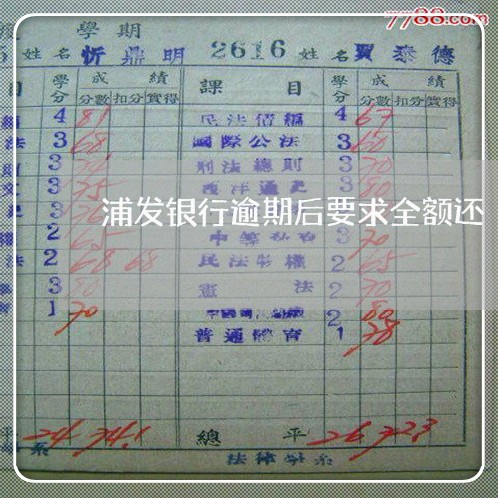 7788.com
學期
5 姓名 忻鼎明 2616 姓名 賈泰德
目 學分 成績 課目 學分 成績
分數 扣分 實得 分數 扣分 實得
4 81 民法債編 4 67
法 3 68 國際公法 3 60
3 刑法總則 3 70
3 75 西洋通史 3 80
浦发银行逾期后要求全额还
2 65 3 70
法 2 68 68 民法物權 2 65
3 80 憲法 2 70
1 70 2 80
普通體育 1 78
平 24 74.1 總平 26 72.3
系 法律學系